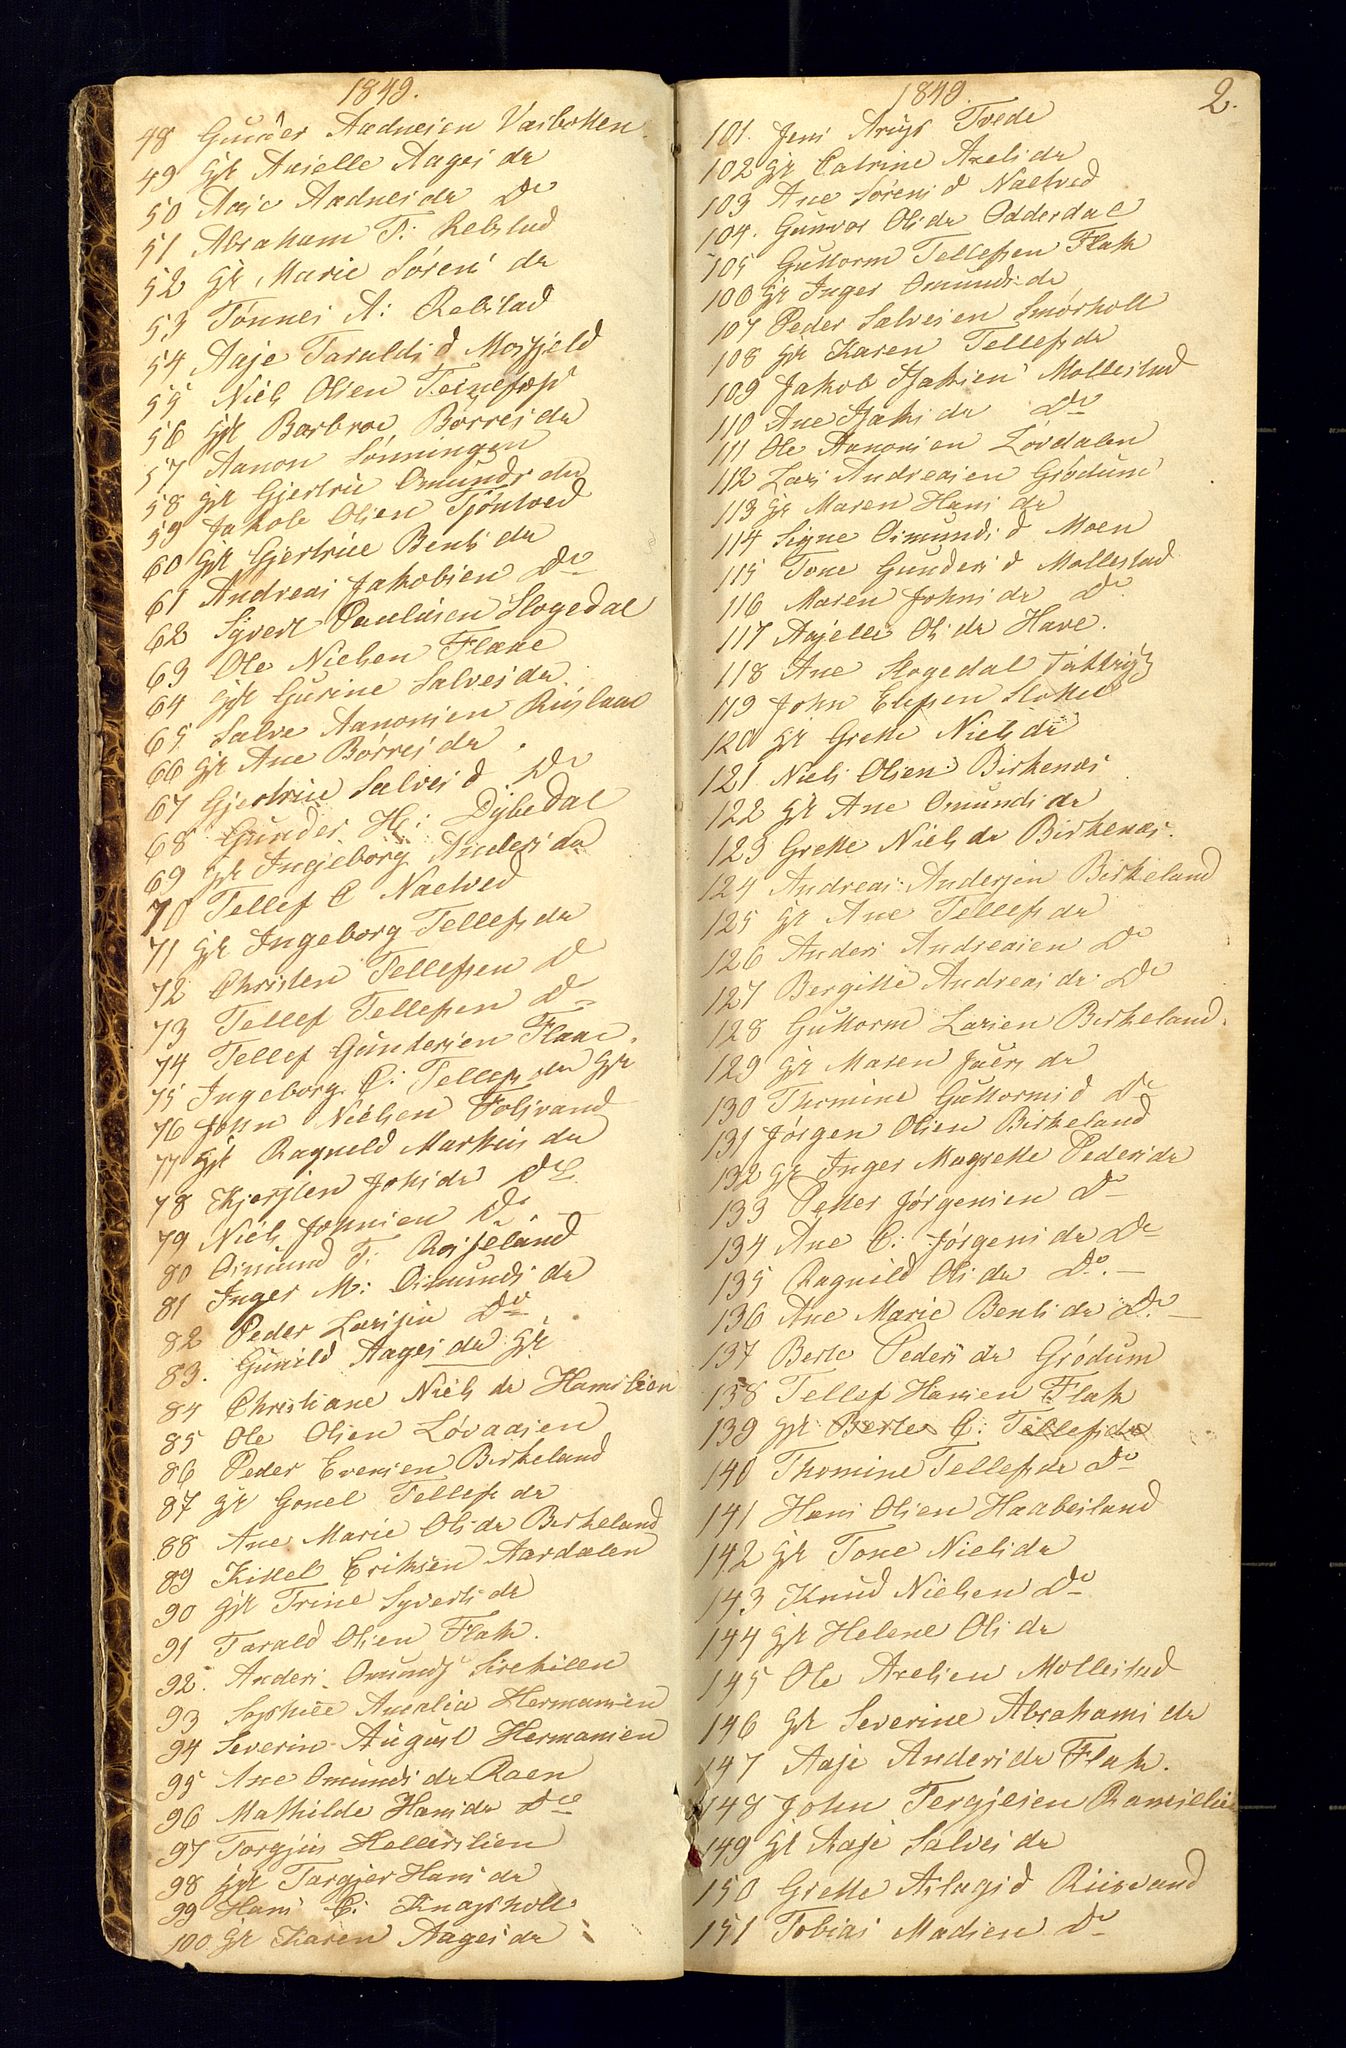 1849.
48 Gunder Aadnesen Væsbotten.
49 Gjt Anselle Aagesda
50 Aase Aadnesda Do
51 Abraham T: Rebstad
52 Gjt Marie Sørens da
53 Tønnes A: Rebstad
54 Aase Taralds d Mosfjeld
55 Niels Olsen
56 Gjt Barbroe Børresda
57 Aanon Lønningen
58 Gjt Gjertrue Omunds da
59 Jakob Olsen Tjøntved
60 Gjt Gjertrue Bents da
61 Andreas Jakobsen Do
62 Syvert Paulusen Slogedal
63 Ole Nielsen Flaae
64 Gjt Gurine Salvesda
65 Salve Aanonsen Ruslaae
66 Gjt Ane Børresda
67 Gjertrue Salves d Do
68 Gunder H: Dybedal
69 Gjt Ingeborg Anders da
70 Tellef C Naetved
71 Gjt Ingeborg Tellefs da
72 Christen Tellefsen D
73 Tellef Tellefsen Do
74 Tellef Gundersen Flaae.
75 Ingeborg C: Tellefs da Gjt
76 John Nielsen Tolivand
77 Gjt Ragneld Markus da
78 Kjersten Johsda Do
79 Niels Johnsen Do
80 Osmund T: Rosseland
81 Inger M: Osmunds da
82 Peder Larsen Do
83. Gunild Aagesda Gjt
84 Christiane Niels da Hamslien
85 Ole Olsen Løvaasen
86 Peder Evensen Birkeland
87 Gjt Gonel Tellefs da
88 Ane Marie Ols da Berkeland
89 Kittel Eriksen Aardalen
90 Gjt Trine Syverts da
91 Tarald Olsen Flak.
92. Anders Omunds
93 Sophie Amalia Hermansen
94 Severin August Hermansen
95 Ane Omunds da Raen
96 Mathilde Hansda Do
97 Torgjus Hellerslien
98 Gjt Targjer Hans da
99 Hans C: Knapsholt
100 Gjt Karen Aagesda
1849. 2.
101. Jens Aruys Tvede
102 Gjt Catrine Axelsda
103 Ane Sørens d Naetved
104. Gunvor Ols da Odderdal
105 Guttorm Tellefsen Flak
106 Gjt Inger Omunds da
107 Peder Salvesen Smørholt
108 Gjt Karen Tellefs da
109 Jakob Isaksen Mollestad
110 Ane Isaks da Do
111 Ole Aanonsen Løvdalen
112 Lars Andreasen Grødum
113 Gjt Maren Hans da
114 Signe Osmunds d Moen
115 Tone Gunders d Mollestad
116 Maren Johns da Do
117 Aaselle Ols da Have.
118 Ane Slogedal Fattig
119 John Elefsen
120 Gjt Grette Niels da
121. Niels Olsen Birkenæs
122 Gjt Ane Omunds da
123 Grette Niels da Birkenæs.
124 Andreas Andersen Birkeland
125 Gjt Ane Tellefs da
126 Anders Andreasen Do
127 Bergitte Andreas da Do
128 Guttorm Larsen Birkeland.
129 Gjt Maren Juers da
130 Thomine Guttorms d Do
131 Jørgen Olsen Birkeland
132 Gjt Inger Magrette Pedersda
133 Petter Jørgensen Do
134 Ane C: Jørgens da Do
135 Ragnild Ols da Do. —
136 Ane Marie Bents da Do. —
137 Berte Peders da Grødum
138 Tellef Hansen Flak
139 Gjt Berte C: Tellefsda
140 Thomine Tellefs da Do
141 Hans Olsen Haabesland
142 Gjt Tone Nielsda
143 Knud Nielsen Do
144 Gjt Helene Ols da
145 Ole Axelsen Mollestad
146 Gjt Severine Abrahams da
147 Aase Anders da Flak.
148 John Tergjesen Ramselie
149 Gjt Aase Salves da
150 Grette Aslags d Riisvand
151 Tobias Madsen Do